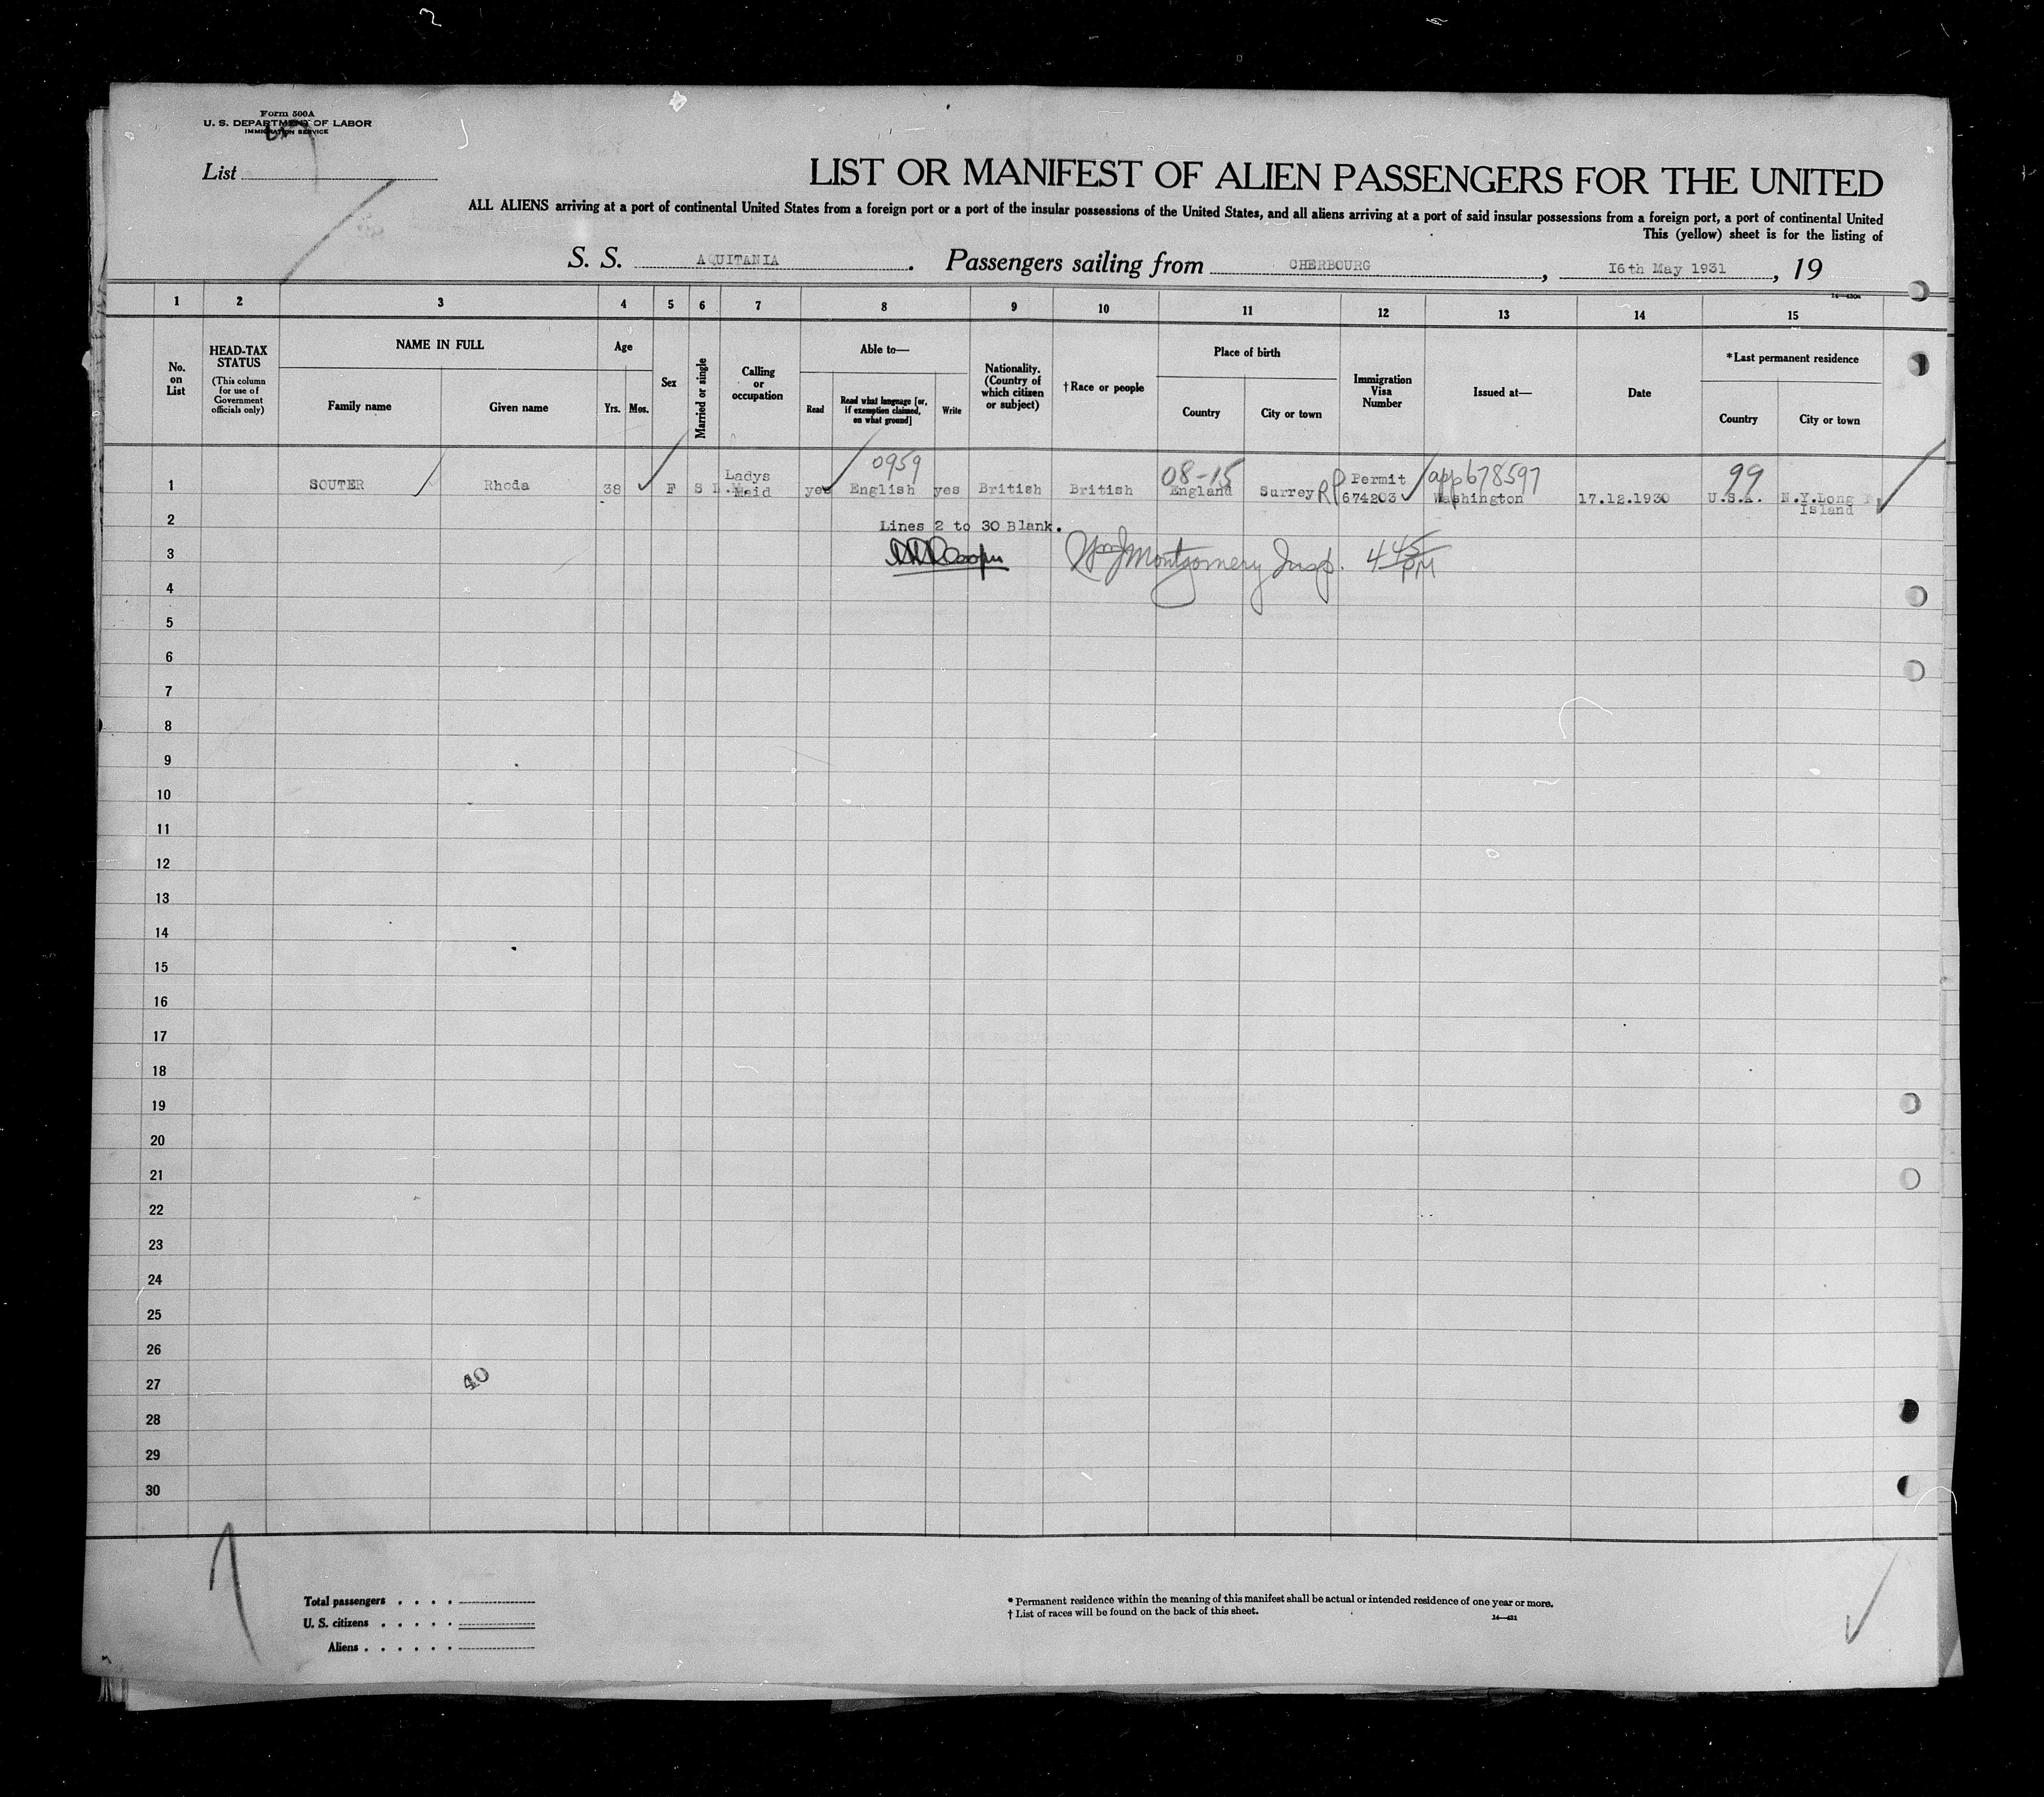 Form 500A
U. S. DEPARTMENT OF LABOR
IMMIGRATION SERVICE
List
LIST OR MANIFEST OF ALIEN PASSENGERS FOR THE UNITED
ALL ALIENS arriving at a port of continental United States from a foreign port or a port of the insular possessions of the United States, and all aliens arriving at a port of said insular possessions from a foreign port, a port of continental United
This (yellow) sheet is for the listing of
S. S. AQUITANIA. Passengers sailing from CHERBOURG, 16th May 1931, 19
1 2 3 4 5 6 7 8 9 10 11 12 13 14 15
No. on List
HEAD-TAX STATUS
(This column for use of Government officials only)
NAME IN FULL
Family name
Given name
Age
Yrs. Mos.
Sex
Married or single
Calling or occupation
Able to—
Read
Read what language [or, if exemption claimed, on what ground]
Write
Nationality. (Country of which citizen or subject)
†Race or people
Place of birth
Country
City or town
Immigration Visa Number
Issued at—
Date
*Last permanent residence
Country
City or town
0959 08-15 app 678597 99
1 SOUTER Rhoda 38 F S Ladys Maid yes English yes British British England Surrey RP Permit 674203 Washington 17.12.1930 U.S.A. N.Y. Long Island
2 Lines 2 to 30 Blank.
3 Wm J Montgomery Insp. 4 45 PM
4
5
6
7
8
9
10
11
12
13
14
15
16
17
18
19
20
21
22
23
24
25
26
27 40
28
29
30
Total passengers . . . .
U. S. citizens . . . . .
Aliens . . . . . .
* Permanent residence within the meaning of this manifest shall be actual or intended residence of one year or more.
† List of races will be found on the back of this sheet.
14—431